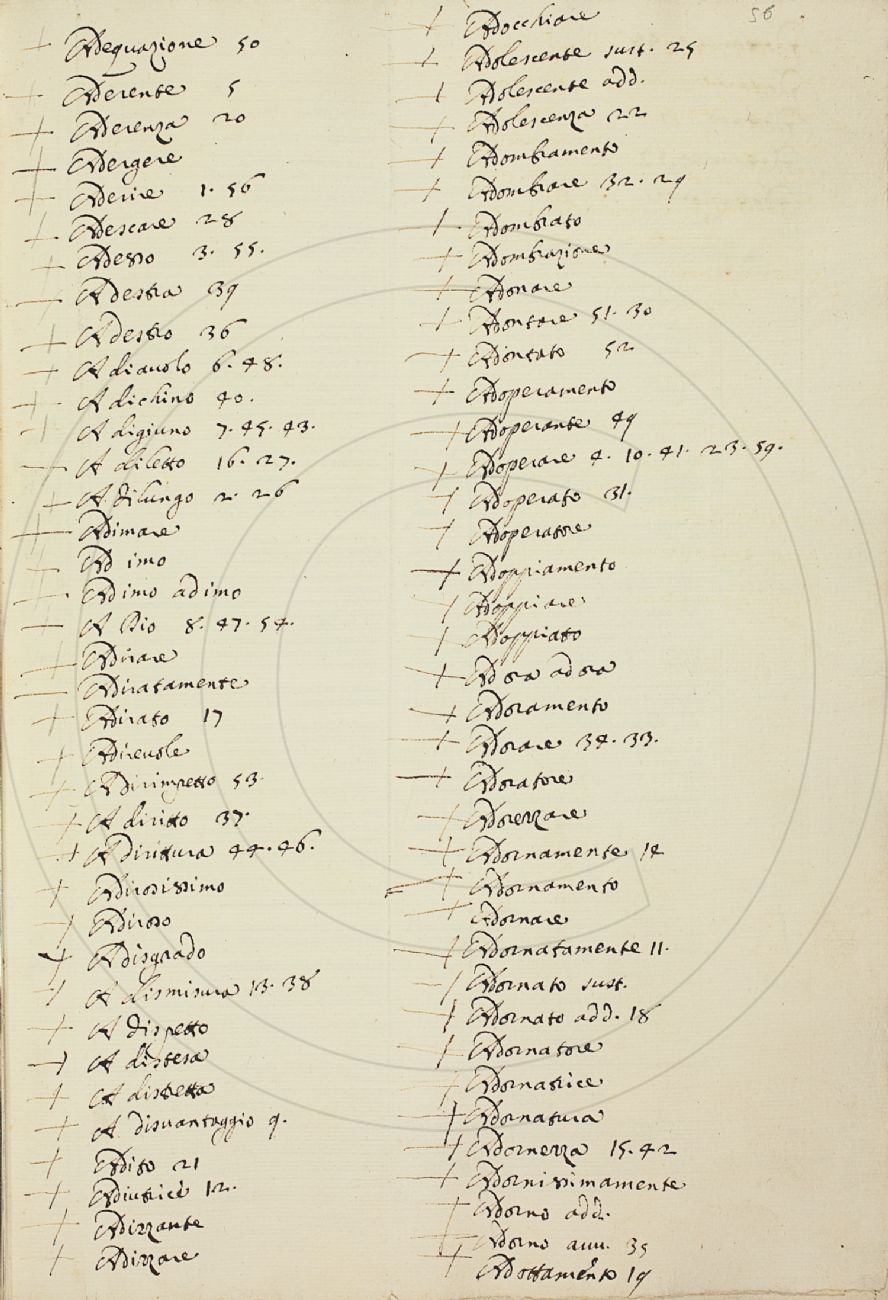 56
Adequazione 50
Aderente 5
Aderenza 20
Adergere
Aderire 1. 56
Adescare 28
Adesso 3. 55.
A destra 39
A destro 36
A diavolo 6. 48.
A dichino 40.
A digiuno 7. 45. 43.
A diletto 16. 27.
A dilungo 2. 26
Adimare
Ad imo
Ad imo ad imo
A Dio 8. 47. 54.
Adirare
Adiratamente
Adirato 17
Adirevole
A dirimpetto 53.
A diritto 37.
A dirittura 44. 46.
Adirosissimo
Adiroso
A disgrado
A dismisura 13. 38
A dispetto
A distesa
A distretta
A disvantaggio 9.
Adito 21
Adiutrice 12.
Adizzante
Adizzare
Adocchiare
Adolescente sust. 25
Adolescente add.
Adolescenza 22
Adombramento
Adombrare 32. 29
Adombrato
Adombrazione
Adonare
Adontare 51. 30
Adontato 52
Adoperamento
Adoperante 49
Adoperare 4. 10. 41. 23. 59.
Adoperato 31.
Adoperatore
Adoppiamento
Adoppiare
Adoppiato
Ad ora ad ora
Adoramento
Adorare 34. 33.
Adoratore
Adorezzare
Adornamente 14
Adornamento
Adornare
Adornatamente 11.
Adornato sust.
Adornato add. 18
Adornatore
Adornatrice
Adornatura
Adornezza 15. 42
Adornissimamente
Adorno add.
Adorno avv. 35
Adottamento 19